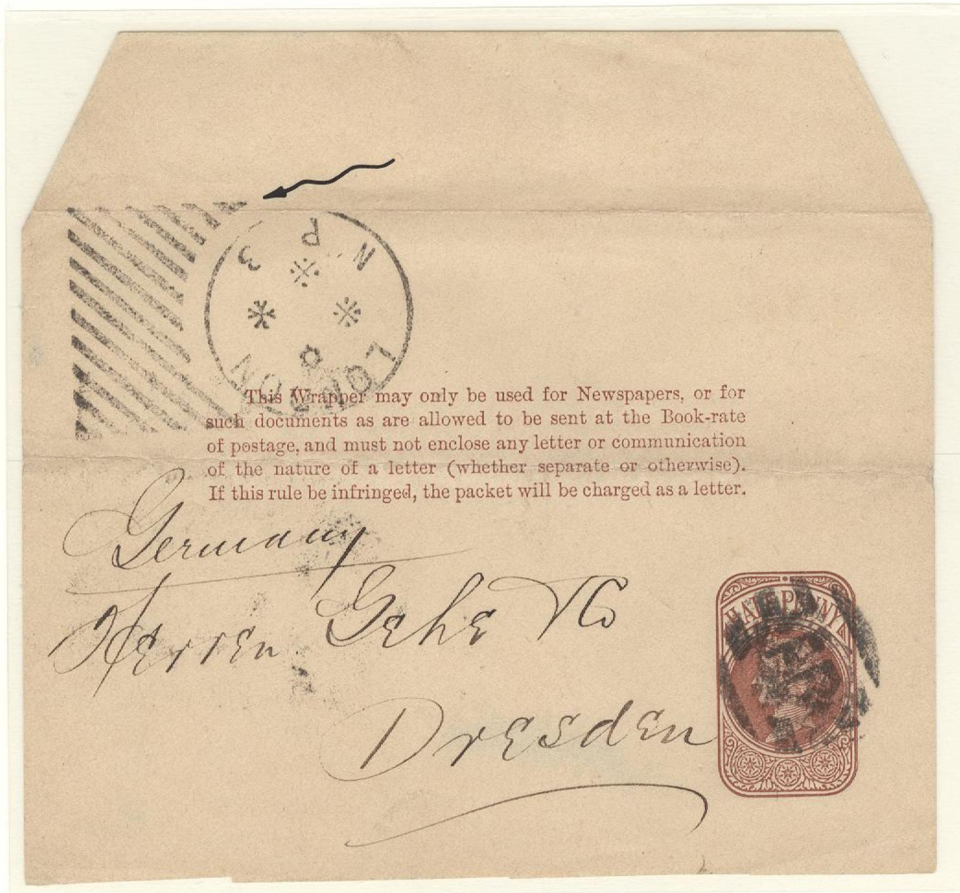 3 P N
LONDON
This Wrapper may only be used for Newspapers, or for
such documents as are allowed to be sent at the Book-rate
of postage, and must not enclose any letter or communication
of the nature of a letter (whether separate or otherwise).
If this rule be infringed, the packet will be charged as a letter.
Germany
Herren Gehe & Co
Dresden
HALFPENNY